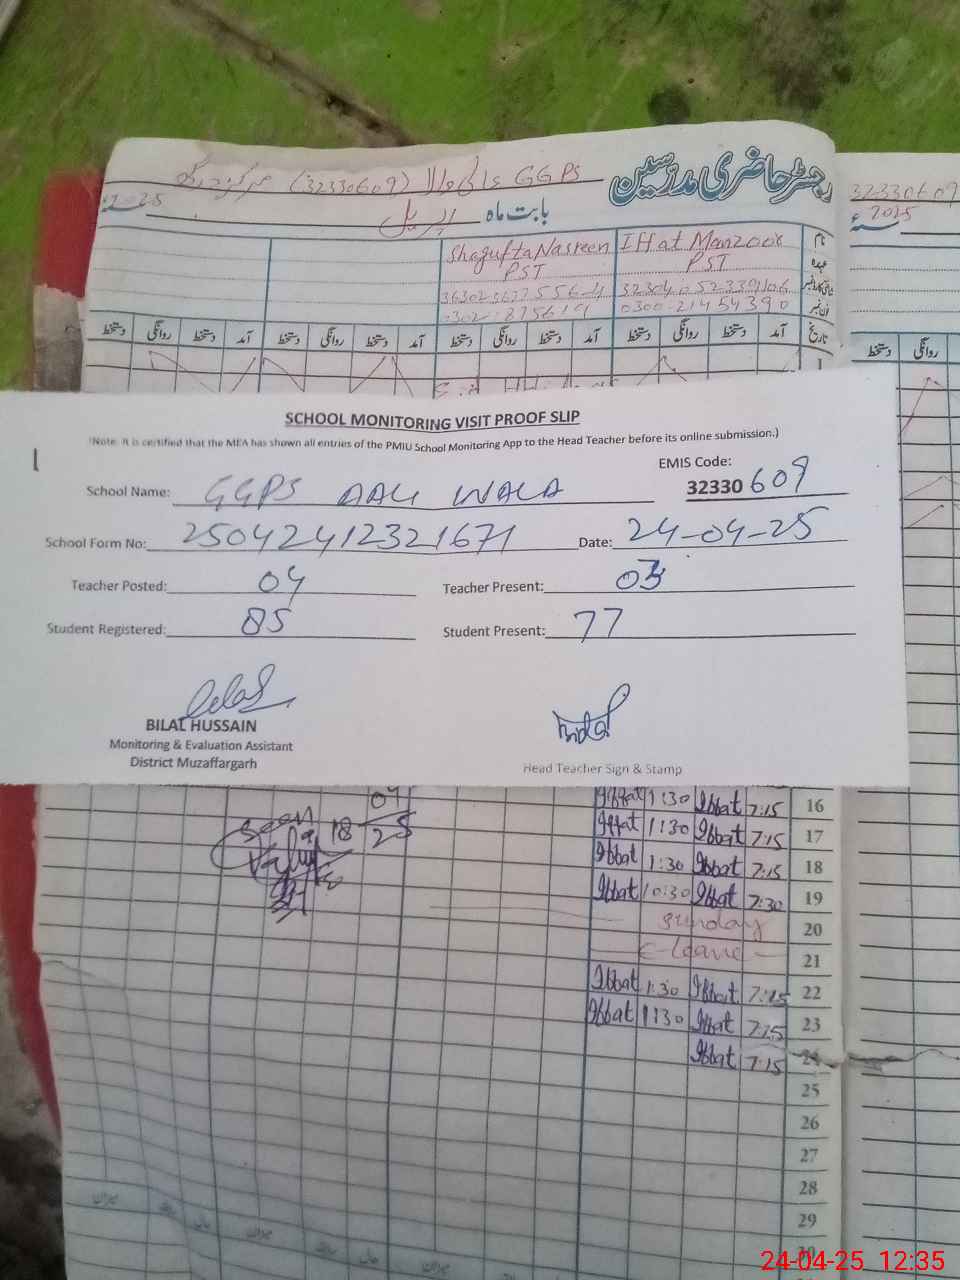 رجسٹر حاضری مدرسین
GGPS عالی والا (32330609) مرکز
بابت ماہ اپریل 2025
32330609
2025
نام
Iffat Manzoor
Shagufta Nasreen
عہدہ
PST
PST
32304
0300-2145439 0
تاریخ
آمد دستخط روانگی دستخط آمد دستخط روانگی دستخط آمد دستخط روانگی دستخط آمد دستخط روانگی دستخط
روانگی دستخط
1
SCHOOL MONITORING VISIT PROOF SLIP
(Note: It is certified that the MEA has shown all entries of the PMIU School Monitoring App to the Head Teacher before its online submission.)
EMIS Code:
School Name: GGPS AALI WALA 32330 609
School Form No: 25042412321671 Date: 24-04-25
Teacher Posted: 04 Teacher Present: 03
Student Registered: 85 Student Present: 77
BILAL HUSSAIN
Monitoring & Evaluation Assistant
District Muzaffargarh
Head Teacher Sign & Stamp
Iffat 1:30 Iffat 7:15 16
Iffat 1:30 Iffat 7:15 17
Iffat 1:30 Iffat 7:15 18
Iffat 10:30 Iffat 7:30 19
Sunday 20
E-leave 21
Iffat 1:30 Iffat 7:15 22
Iffat 1:30 Iffat 7:15 23
Iffat 7:15 24
25
26
27
28
29
30
Seen
18 04 25
24-04-25 12:35